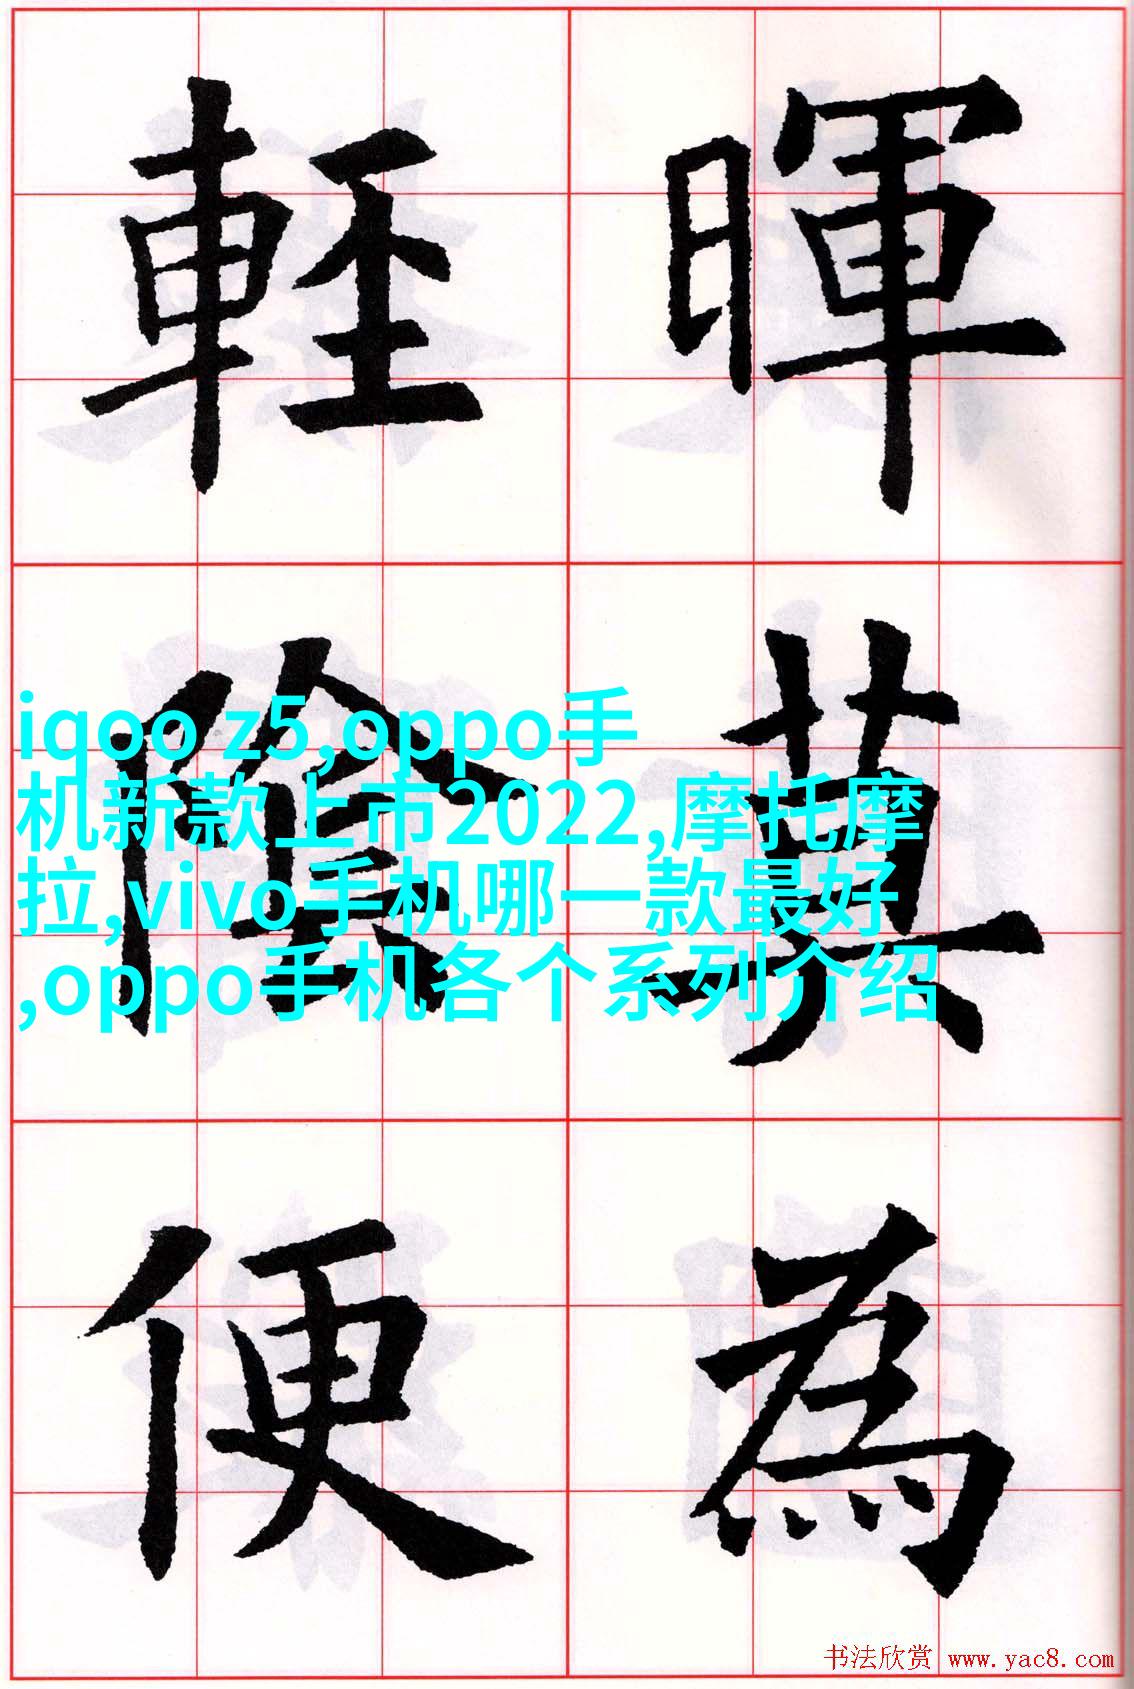 暉莫為
輕陰便
iqoo z5,oppo手
机新款上市2022,摩托摩
拉,vivo手机哪一款最好
,oppo手机各个系列介绍
书法欣赏 www.yac8.com